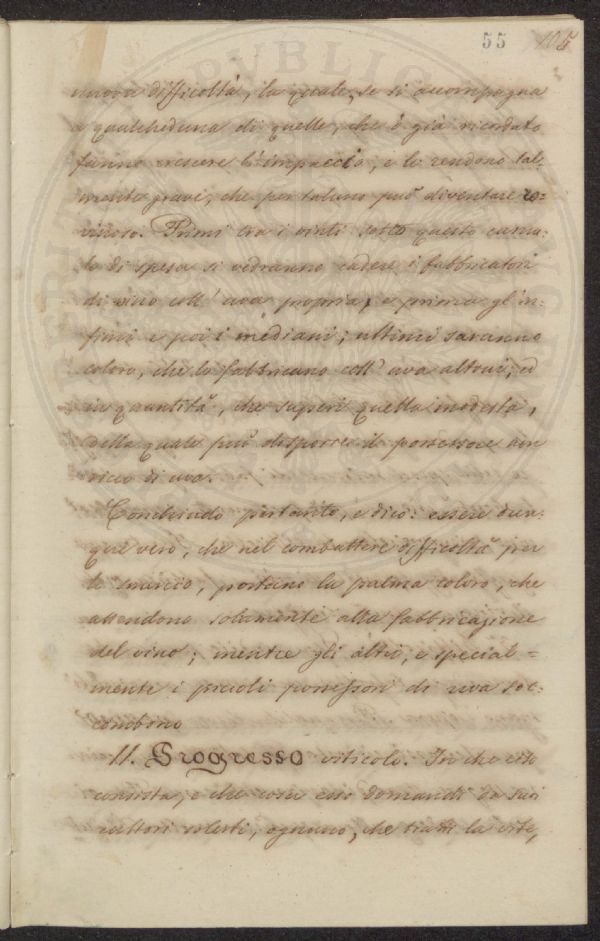 55 105
nuova difficoltà, la quale, se si accompagna
a qualcheduna di quelle, che ò già ricordato
fanno crescere l'impaccio, e lo rendono tal-
mente grave, che per taluno può diventare ro-
vinoso. Primi tra i vinti sotto questo carica-
to di spesa si vedranno cadere i fabbricatori
di vino coll'uva propria, e prima gl'in-
fimi e poi i mediani; ultimi saranno
coloro, che lo fabbricano coll'uva altrui, ed
in quantità, che superi quella modesta,
della quale può disporre il possessore
ricco di uva.
Conchiudo pertanto, e dico: essere dun-
que vero, che nel combattere difficoltà per
lo smercio, portano la palma coloro, che
attendono solamente alla fabbricazione
del vino; mentre gli altri, e special-
mente i piccioli possessori di uva soc-
combono
II. Progresso viticolo. In che esso
consista, e che cosa esso domandi da suoi
cultori solerti, ognuno, che tratti la vite,